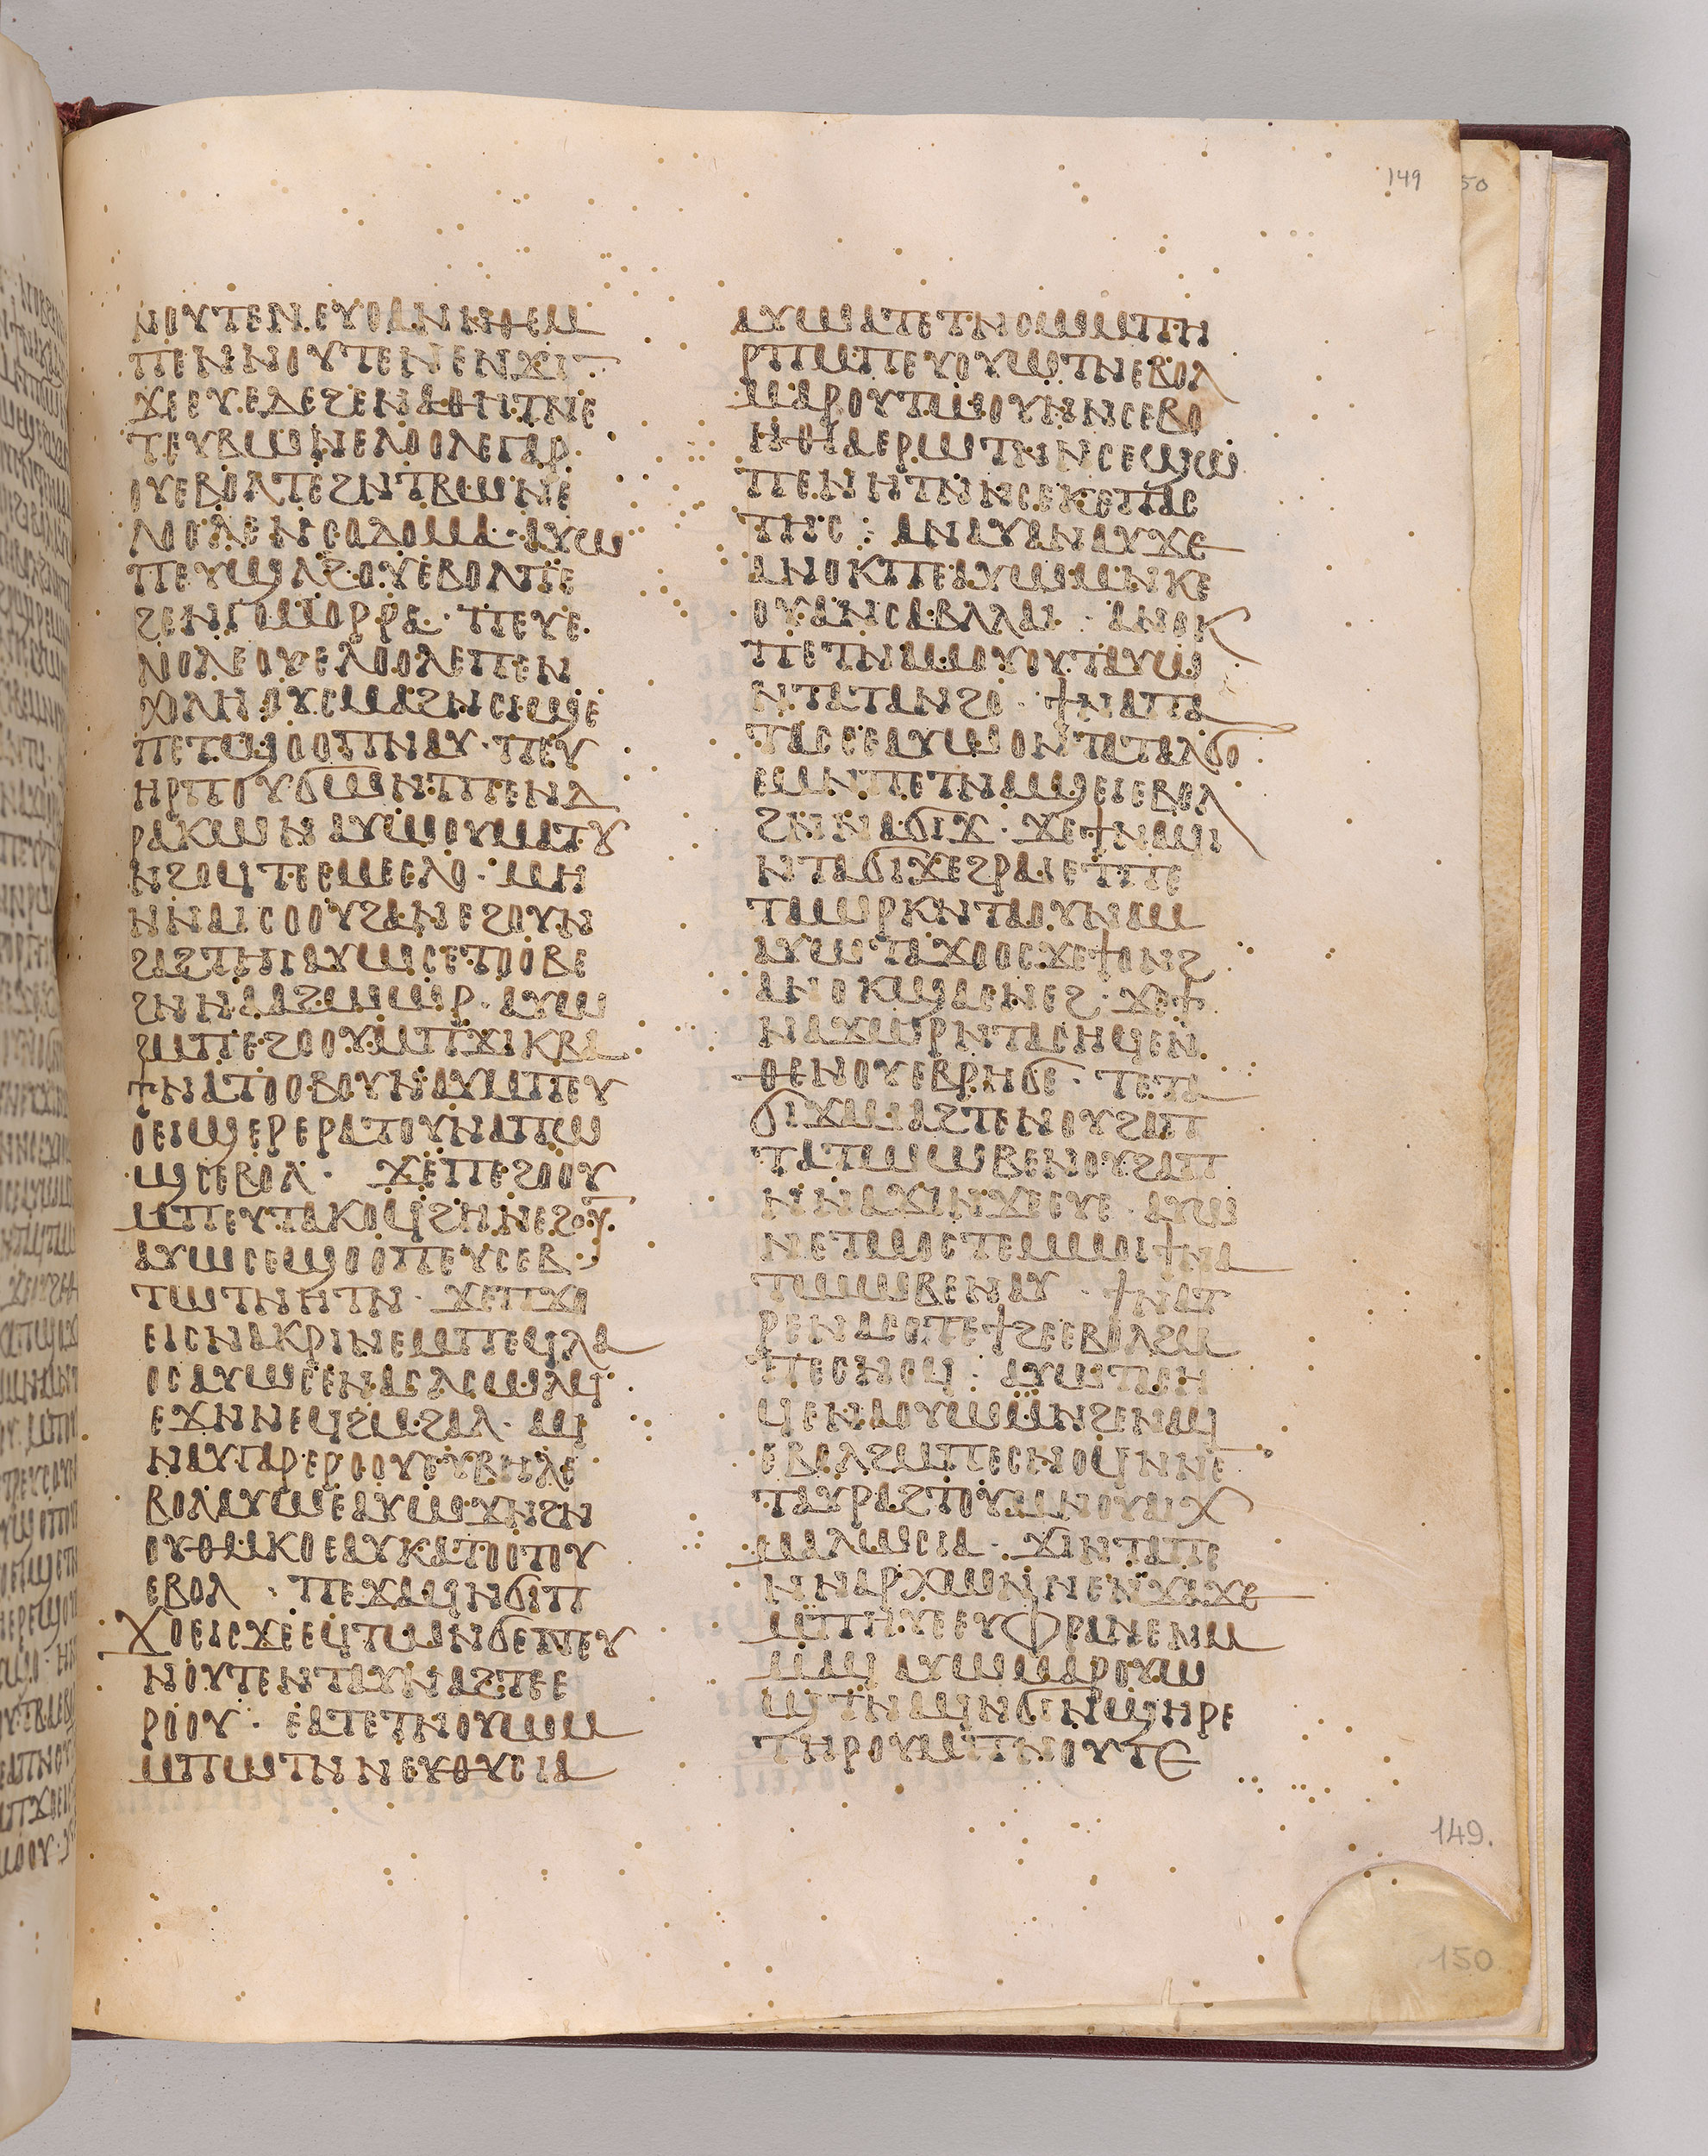 ⲛⲟⲩⲧⲉⲛⲉⲩⲟⲁⲛⲛⲑⲉⲙ
ⲡⲉⲛⲛⲟⲩⲧⲉⲛⲉⲛϫⲓ
ϫⲉⲉⲩⲉⲇⲉϩⲉⲛⲁⲑⲏⲧⲛⲉ
ⲧⲉⲩⲃⲱⲛⲉⲗⲟⲟⲗⲉⲅⲁⲣ
ⲟⲩⲉⲃⲟⲗⲧⲉϩⲛⲧⲃⲱⲛⲉ
ⲗⲟⲟⲗⲉⲛⲥⲟⲇⲟⲙⲁ·ⲁⲩⲱ
ⲡⲉⲩϣⲗϩⲟⲩⲉⲃⲟⲗⲡⲉ
ϩⲉⲛⲅⲟⲙⲟⲣⲣⲁ·ⲡⲉⲩⲉ
ⲗⲟⲟⲗⲉⲟⲩⲉⲗⲟⲟⲗⲉⲡⲉⲛ
ⲭⲟⲗⲏⲟⲩⲥⲙⲁϩⲛⲥⲓϣⲉ
ⲡⲉⲧϣⲟⲟⲡⲛⲁⲩ·ⲡⲉⲩ
ⲏⲣⲡⲟⲩϭⲱⲛⲧⲡⲉⲛⲇ
ⲣⲁⲕⲱⲛⲁⲩⲱⲟⲩⲙⲁⲧⲩ
ⲛϩⲟϥⲧⲉⲉⲙⲉⲥⲗⲟ·ⲙⲏ
ⲛⲛⲁⲓⲥⲟⲟⲩϩⲁⲛⲉϩⲟⲩⲛ
ϩⲁϩⲧⲏⲓⲁⲩⲱⲥⲉⲧⲟⲟⲃⲉ
ϩⲛⲛⲁⲁϩⲱⲱⲣ·ⲁⲩⲱ
ϩⲙⲡⲉϩⲟⲟⲩⲙⲡϫⲓⲕⲃⲁ
ϯⲛⲁⲧⲟⲟⲃⲟⲩⲛⲁⲩⲙⲡⲉⲩ
ⲟⲉⲓϣⲉⲣⲉⲣⲁⲧⲟⲩⲛⲁⲡⲱ
ϣⲥⲉⲃⲟⲗ·ϫⲉⲡⲉϩⲟⲟⲩ
ⲙⲡⲉⲩⲧⲁⲕⲟϥϩⲏⲛⲉϩⲟⲩ
ⲁⲩⲱⲥⲉϣⲟⲟⲡⲉⲩⲥⲉⲃ
ⲧⲱⲧⲛⲏⲧⲛ·ϫⲉⲡϫⲟ
ⲉⲓⲥⲛⲁⲕⲣⲓⲛⲉⲙⲡⲉϥⲗⲁ
ⲟⲥⲁⲩⲱⲥⲉⲛⲁⲥⲗⲥⲱⲗϥ
ⲉϫⲛⲛⲉϥϩⲙϩⲁⲗ·ⲁϥ
ⲛⲁⲩⲅⲁⲣⲉⲣⲟⲟⲩⲉⲩⲃⲏⲗⲉ
ⲃⲟⲗⲁⲩⲱⲉⲁⲩⲱϫⲛϩⲛ
ⲟⲩⲑⲙⲕⲟⲉⲁⲩⲕⲁⲧⲟⲟⲧⲟⲩ
ⲉⲃⲟⲗ·ⲡⲉϫⲁϥⲛϭⲓⲡ
ϫⲟⲉⲓⲥϫⲉⲉϥⲧⲱⲛϭⲉⲡⲉⲩ
ⲛⲟⲩⲧⲉⲛⲧⲁⲩⲛⲁϩⲧⲉⲉ
ⲣⲟⲟⲩ·ⲉⲁⲧⲉⲧⲛⲟⲩⲱⲙ
ⲙⲡⲱⲧⲛⲛⲉⲩⲑⲩⲥⲓⲁ
ⲁⲩⲱⲁⲧⲉⲧⲛⲥⲱⲙⲡⲏ
ⲣⲡⲙⲡⲉⲩⲟⲩⲱⲧⲛⲉⲃⲟⲗ
ⲙⲁⲣⲟⲩⲧⲱⲟⲩⲛⲛⲥⲉⲃⲟ
ⲏⲑⲓⲁⲉⲣⲱⲧⲛⲛⲥⲉϣⲱ
ⲡⲉⲛⲏⲧⲛⲛⲥⲕⲉⲡⲁⲥ
ⲧⲏⲥ:ⲁⲛⲁⲩⲁⲛⲁⲩϫⲉ
ⲁⲛⲟⲕⲡⲉⲁⲩⲱⲙⲛⲕⲉ
ⲟⲩⲁⲛⲥⲁⲃⲗⲗⲁⲓ·ⲁⲛⲟⲕ
ⲡⲉⲧⲛⲁⲙⲟⲩⲟⲩⲧⲁⲩⲱ
ⲛⲧⲁⲧⲁⲛϩⲟ·ϯⲛⲁⲡⲁ
ⲧⲁⲥⲥⲉⲁⲩⲱⲟⲛⲧⲁⲧⲁⲗϭⲟ
ⲉⲙⲛⲡⲉⲧⲛⲁϣⲉⲓⲉⲃⲟⲗ
ϩⲛⲛⲁϭⲓϫ·ϫⲉϯⲛⲁϥⲓ
ⲛⲧⲁϭⲓϫⲉϩⲣⲁⲓⲉⲧⲡⲉ
ⲧⲁⲱⲣⲕⲛⲧⲁⲟⲩⲛⲁⲙ
ⲁⲩⲱⲧⲁϫⲟⲟⲥϫⲉϯⲟⲛϩ
ⲁⲛⲟⲕϣⲁⲉⲛⲉϩ·ϫⲉϯ
ⲛⲁϫⲱⲣⲛⲧⲁⲥⲏϥⲉⲛ
ⲑⲉⲛⲟⲩⲉⲃⲣⲏϭⲉ·ⲧⲉⲧⲁ
ϭⲓϫⲁⲙⲁϩⲧⲉⲛⲟⲩϩⲁⲡ
ⲧⲁⲧⲱⲱⲃⲉⲛⲟⲩϩⲁⲡ
ⲛⲛⲁϫⲓⲛϫⲉⲉⲩⲉ·ⲁⲩⲱ
ⲛⲉⲧⲙⲟⲥⲧⲉⲙⲙⲟⲓϯⲛⲁ
ⲧⲱⲱⲃⲉⲛⲁⲩ·ϯⲛⲁⲧ
ⲣⲉⲛⲁⲥⲟⲧⲉϯϩⲉⲉⲃⲟⲗϩⲙ
ⲡⲉⲥⲛⲟϥ·ⲁⲩⲱⲧⲁⲥⲏ
ϥⲉⲛⲁⲟⲩⲱⲙⲛϩⲉⲛⲁϥ
ⲉⲃⲟⲗϩⲙⲡⲉⲥⲛⲟϥⲛⲛⲉ
ⲧⲁⲩⲣⲁϩⲧⲟⲩⲙⲛⲟⲩⲁⲓⲭ
ⲙⲁⲗⲱⲥⲓⲁ·ϫⲓⲛⲧⲁⲡⲉ
ⲛⲛⲁⲣⲭⲱⲛⲛⲉⲛϫⲁϫⲉ
ⲙⲡⲏⲩⲉⲉⲩⲫⲣⲁⲛⲉⲛⲙ
ⲙⲁϥⲁⲩⲱⲙⲁⲣⲟⲩⲱ
ϣⲧⲛⲁϥⲛϭⲓⲛϣⲏⲣⲉ
ⲧⲏⲣⲟⲩⲙⲡⲛⲟⲩⲧⲉ
149
50
149.
150